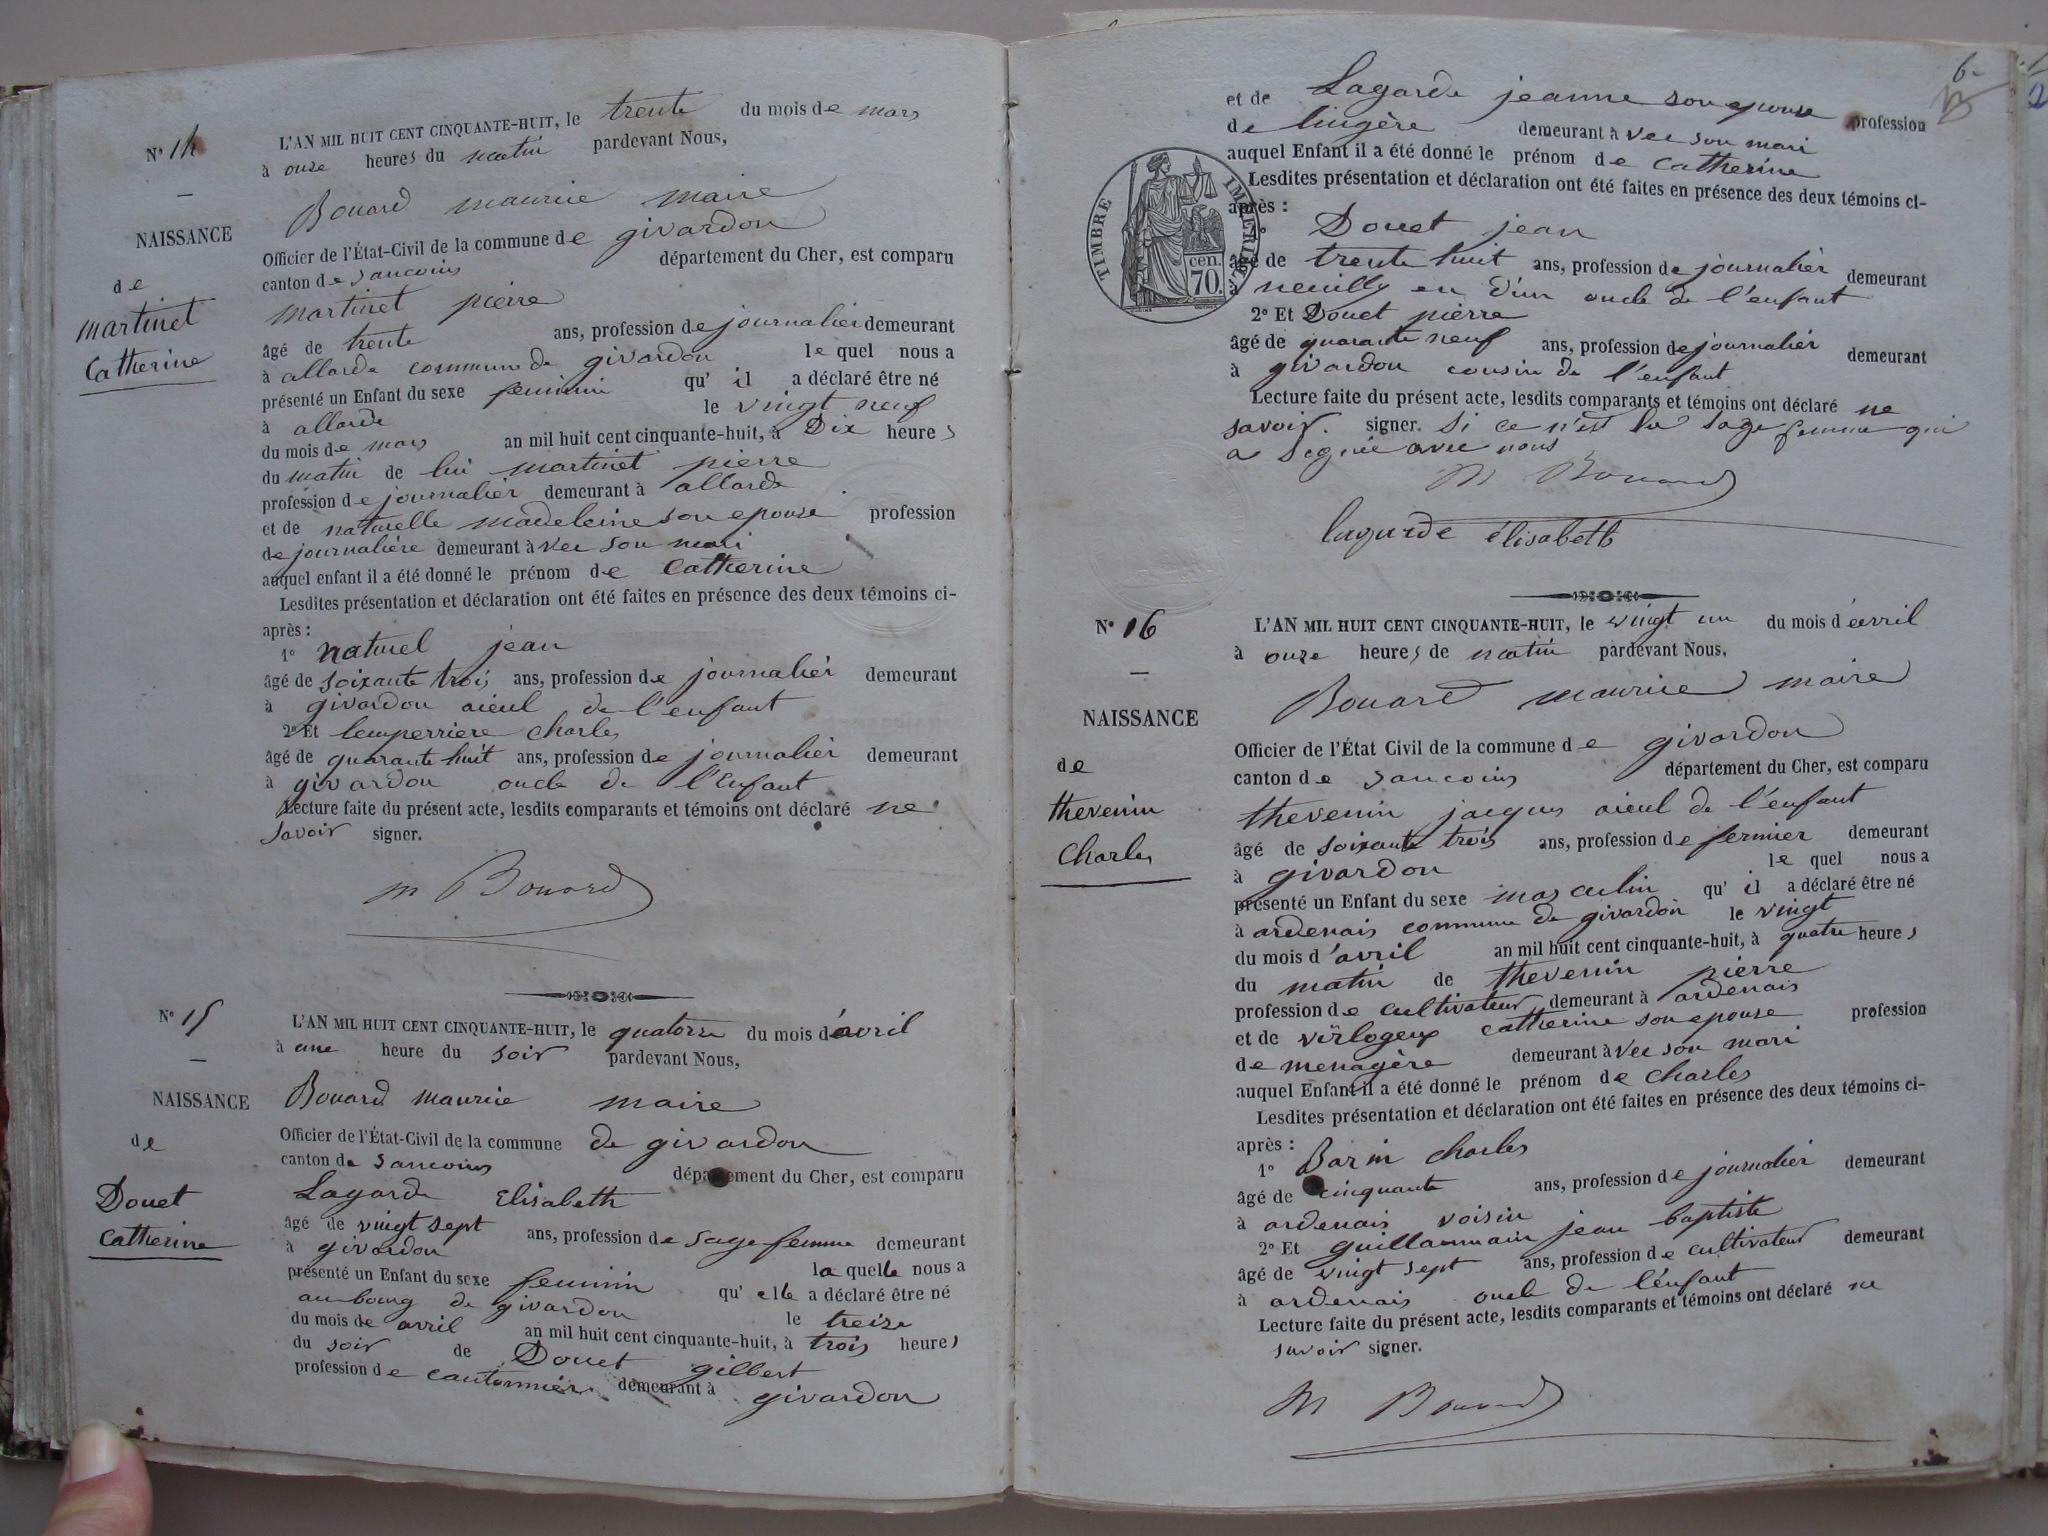 N° 14
L'AN MIL HUIT CENT CINQUANTE-HUIT, le trente du mois de mars
à onze heures du matin pardevant Nous,
Bouard maurice maire
NAISSANCE
Officier de l'État-Civil de la commune de givardon
canton de sancoins département du Cher, est comparu
de
martinet
Catherine
martinet pierre
âgé de trente ans, profession de journalier demeurant
à allarde commune de givardon le quel nous a
présenté un Enfant du sexe feminin qu' il a déclaré être né
à allarde le vingt neuf
du mois de mars an mil huit cent cinquante-huit, à Dix heures
du matin de lui martinet pierre
profession de journalier demeurant à allarde
et de naturelle madeleine son epouse profession
de journalière demeurant à vec son mari
auquel enfant il a été donné le prénom de Catherine
Lesdites présentation et déclaration ont été faites en présence des deux témoins ci-
après :
1° naturel jean
âgé de soixante trois ans, profession de journalier demeurant
à givardon aieul de l'enfant
2° Et lemperriere charles
âgé de quarante huit ans, profession de journalier demeurant
à givardon oncle de l'Enfant
Lecture faite du présent acte, lesdits comparants et témoins ont déclaré ne
savoir signer.
m Bouard
N° 15
L'AN MIL HUIT CENT CINQUANTE-HUIT, le quatorze du mois d'avril
à une heure du soir pardevant Nous,
NAISSANCE
Bouard maurice maire
de
Officier de l'État-Civil de la commune de givardon
canton de sancoins département du Cher, est comparu
Douet
Catherine
Lagarde Elisabeth
âgé de vingt sept ans, profession de sage femme demeurant
à givardon la quelle nous a
présenté un Enfant du sexe feminin qu' elle a déclaré être né
au bourg de givardon le treize
du mois de avril an mil huit cent cinquante-huit, à trois heures
du soir de Douet gilbert
profession de cantonnier demeurant à givardon
6
et de Lagarde jeanne son epouse profession
de lingère demeurant à vec son mari
auquel Enfant il a été donné le prénom de Catherine
Lesdites présentation et déclaration ont été faites en présence des deux témoins ci-
après :
TIMBRE IMPERIAL
cen.
70.
1° Douet jean
âgé de trente huit ans, profession de journalier demeurant
à neuilly en d'un oncle de l'enfant
2° Et Douet pierre
âgé de quarante neuf ans, profession de journalier demeurant
à givardon cousin de l'enfant
Lecture faite du présent acte, lesdits comparants et témoins ont déclaré ne
savoir. signer. si ce n'est la sage femme qui
a signée avec nous
M Bouard
lagarde élisabeth
N° 16
L'AN MIL HUIT CENT CINQUANTE-HUIT, le vingt un du mois d'avril
à onze heures de matin pardevant Nous,
Bouard maurice maire
NAISSANCE
Officier de l'État Civil de la commune de givardon
canton de sancoins département du Cher, est comparu
de
thevenin
Charles
thevenin jacques aieul de l'enfant
âgé de soixante trois ans, profession de fermier demeurant
à givardon le quel nous a
présenté un Enfant du sexe masculin qu' il a déclaré être né
à ardenais commune de givardon le vingt
du mois d'avril an mil huit cent cinquante-huit, à quatre heures
du matin de thevenin pierre
profession de cultivateur demeurant à ardenais
et de virlogeux catherine son epouse profession
de menagère demeurant à vec son mari
auquel Enfant il a été donné le prénom de charles
Lesdites présentation et déclaration ont été faites en présence des deux témoins ci-
après :
1° Barin charles
âgé de cinquante ans, profession de journalier demeurant
à ardenais voisin
2° Et guillaumain jean baptiste
âgé de vingt sept ans, profession de cultivateur demeurant
à ardenais oncle de l'enfant
Lecture faite du présent acte, lesdits comparants et témoins ont déclaré ne
savoir signer.
M Bouard